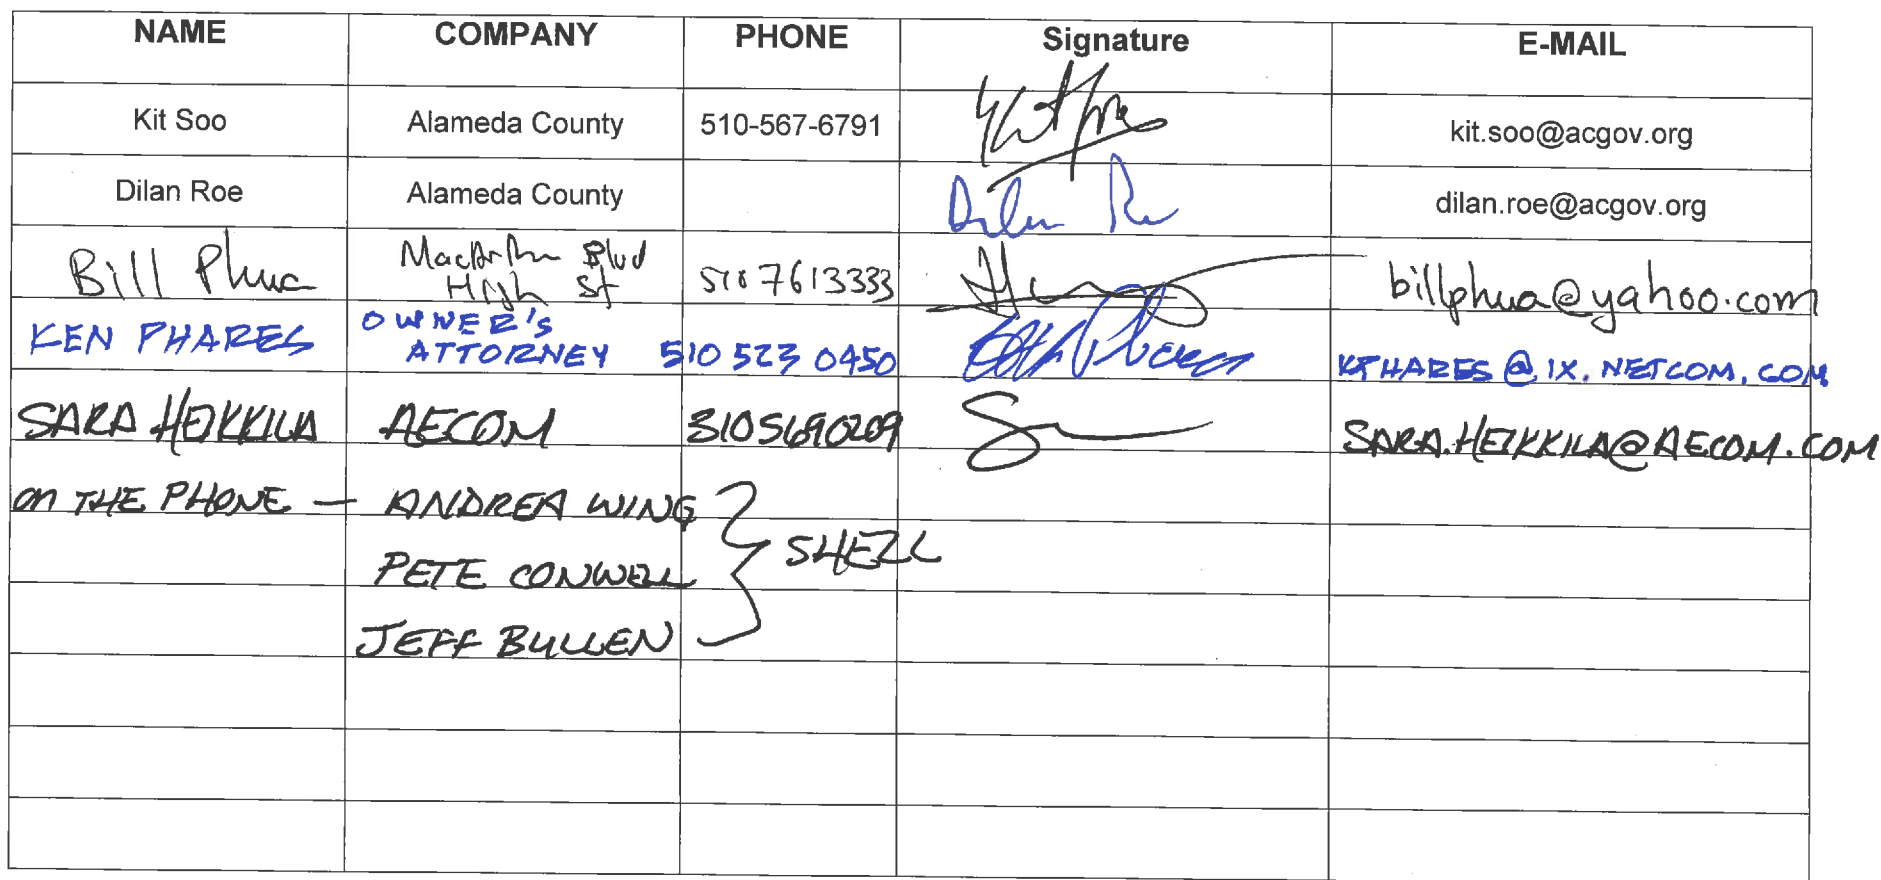 NAME COMPANY PHONE Signature E-MAIL
Kit Soo Alameda County 510-567-6791 kit.soo@acgov.org
Dilan Roe Alameda County Dilan Roe dilan.roe@acgov.org
Bill Phua MacArthur Blvd
High St 510 7613333 billphua@yahoo.com
KEN PHARES OWNER'S
ATTORNEY 510 523 0450 KPHARES@IX.NETCOM.COM
SARA HEIKKILA AECOM 3105690209 SARA.HEIKKILA@AECOM.COM
on THE PHONE — ANDREA WING
SHELL
PETE CONWELL
JEFF BULLEN